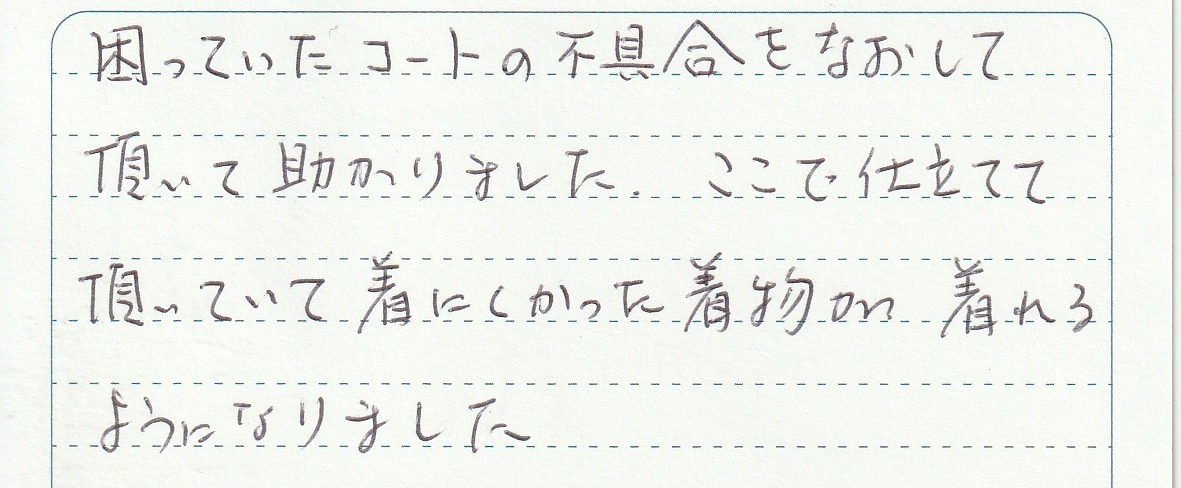 困っていたコートの不具合をなおして
頂いて助かりました。ここで仕立てて
頂いていて着にくかった着物が着れる
ようになりました